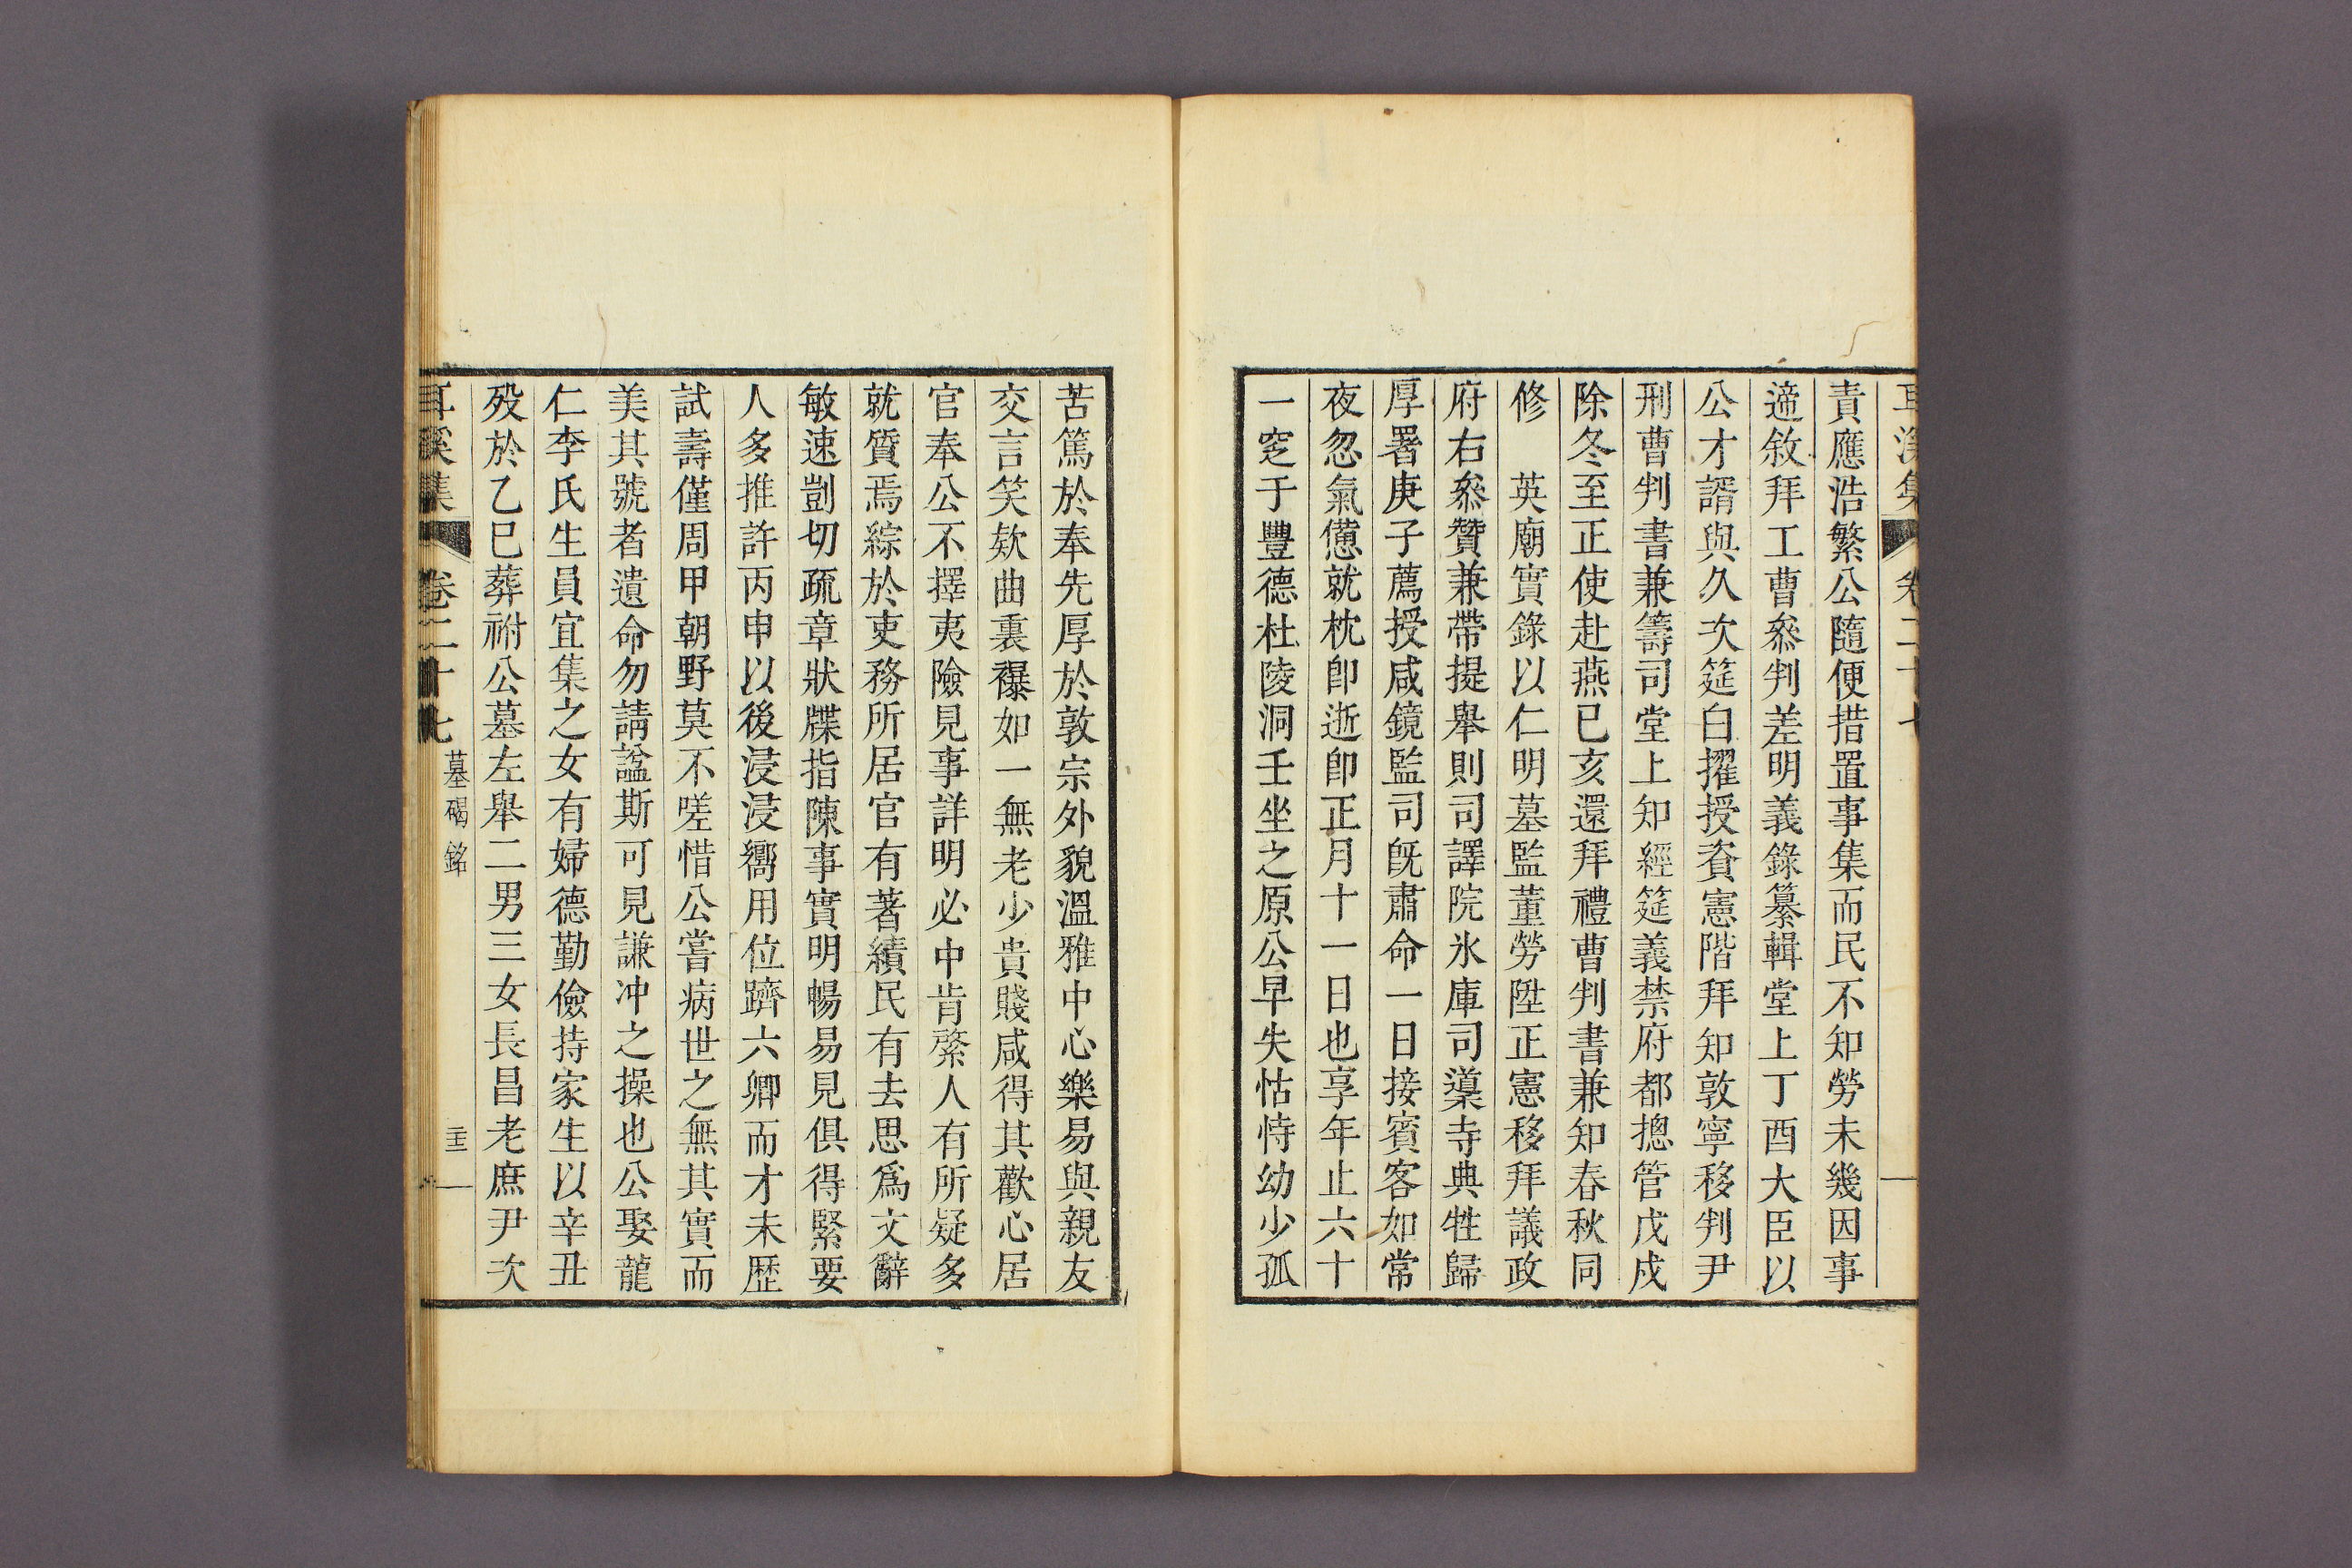 責應浩繁公隨便措置事集而民不知勞未幾因事
適敘拜工曹叅判差明義錄纂輯堂上丁酉大臣以
公才諝與久次筵白擢授資憲階拜知敦寧移判尹
刑曹判書兼籌司堂上知經筵義禁府都摠管戊戌
除冬至正使赴燕己亥還拜禮曹判書兼知春秋同
修　英廟實錄以仁明墓監董勞陞正憲移拜議政
府右叅贊兼帶提舉則司譯院氷庫司䆃寺典牲歸
厚署庚子薦授咸鏡監司旣肅命一日接賓客如常
夜忽氣憊就枕卽逝卽正月十一日也享年止六十
一窆于豐德杜陵洞壬坐之原公早失怙恃幼少孤
苦篤於奉先厚於敦宗外貌溫雅中心樂易與親友
交言笑欵曲裏襮如一無老少貴賤咸得其歡心居
官奉公不擇夷險見事詳明必中肯綮人有所疑多
就質焉綜於吏務所居官有著績民有去思爲文辭
敏速剴切疏章狀牒指陳事實明暢易見俱得緊要
人多推許丙申以後浸浸嚮用位躋六卿而才未歷
試壽僅周甲朝野莫不嗟惜公嘗病世之無其實而
美其號者遺命勿請諡斯可見謙冲之操也公娶龍
仁李氏生員宜集之女有婦德勤儉持家生以辛丑
歿於乙巳葬祔公墓左舉二男三女長昌老庶尹次
耳溪集　卷二十七　墓碣銘